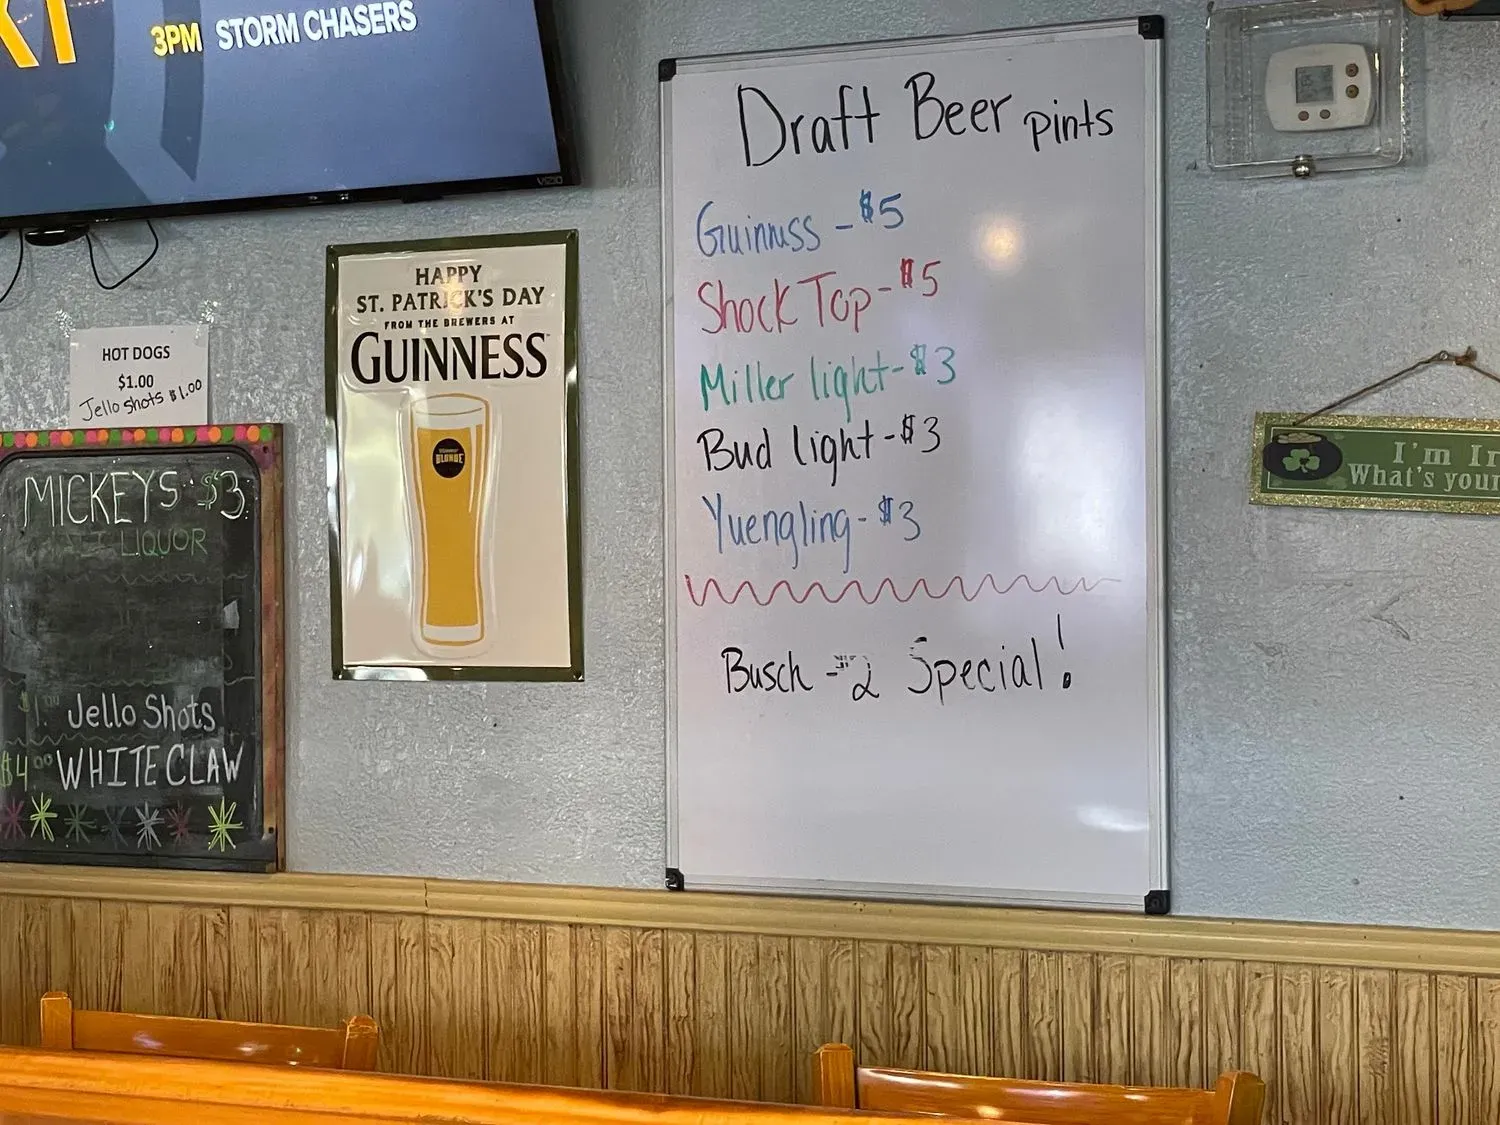 3PM STORM CHASERS
VIZIO
HOT DOGS
$1.00
Jello Shots $1.00
MICKEYS $3
LIQUOR
$1.00 Jello Shots
$4.00 WHITE CLAW
HAPPY
ST. PATRICK'S DAY
FROM THE BREWERS AT
GUINNESS
BLONDE
Draft Beer pints
Guinnuss - $5
Shock Top - $5
Miller light - $3
Bud light - $3
Yuengling - $3
Busch - $2 Special!
I'm Ir
What's your